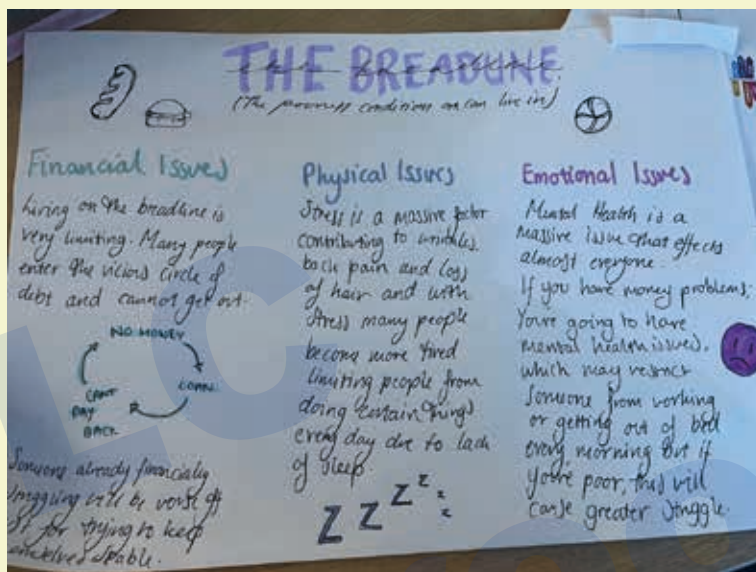 THE BREADLINE
(The poorness conditions on can live in)
Financial Issues
Living on the breadline is
very limiting. Many people
enter the vicious circle of
debt and cannot get out.
NO MONEY
LOAN
CANT
PAY
BACK
Someone already financially
struggling will be worse off
for trying to keep
stable.
Physical Issues
Stress is a massive factor
contributing to wrinkles,
back pain and loss
of hair and with
stress many people
become more tired
limiting people from
doing certain things
every day due to lack
of sleep
Z Z Z Z Z Z
Emotional Issues
Mental Health is a
massive issue that effects
almost everyone.
If you have money problems,
You're going to have
mental health issues,
which may restrict
someone from working
or getting out of bed
every morning but if
you're poor, this will
cause greater struggle.